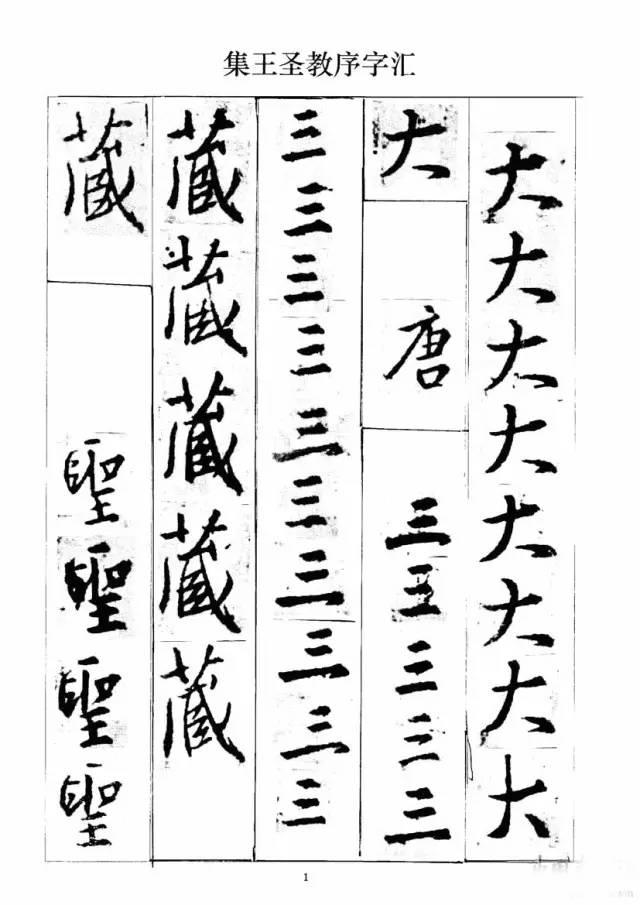 集王圣教序字汇
大大大大大大大大
大唐三三三三三
三三三三三三三三三三
藏藏藏藏藏
藏聖聖聖聖
1